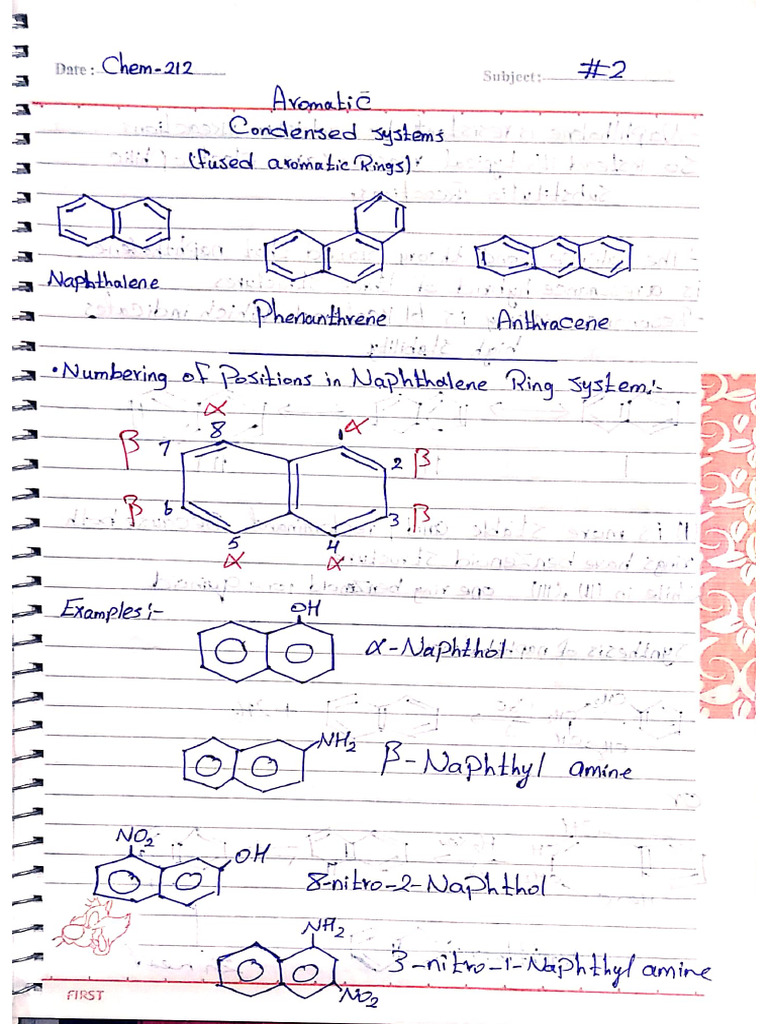 Date: Chem-212 Subject: #2
Aromatic
Condensed systems
(fused aromatic Rings):
Naphthalene
Phenanthrene Anthracene
• Numbering of Positions in Naphthalene Ring system:-
α α
β 7 8 1 2 β
β 6 3 β
5 4
α α
Examples:-
OH
α-Naphthol.
NH2
β-Naphthyl amine
NO2
OH
8-nitro-2-Naphthol
NH2
3-nitro-1-Naphthyl amine
NO2
FIRST